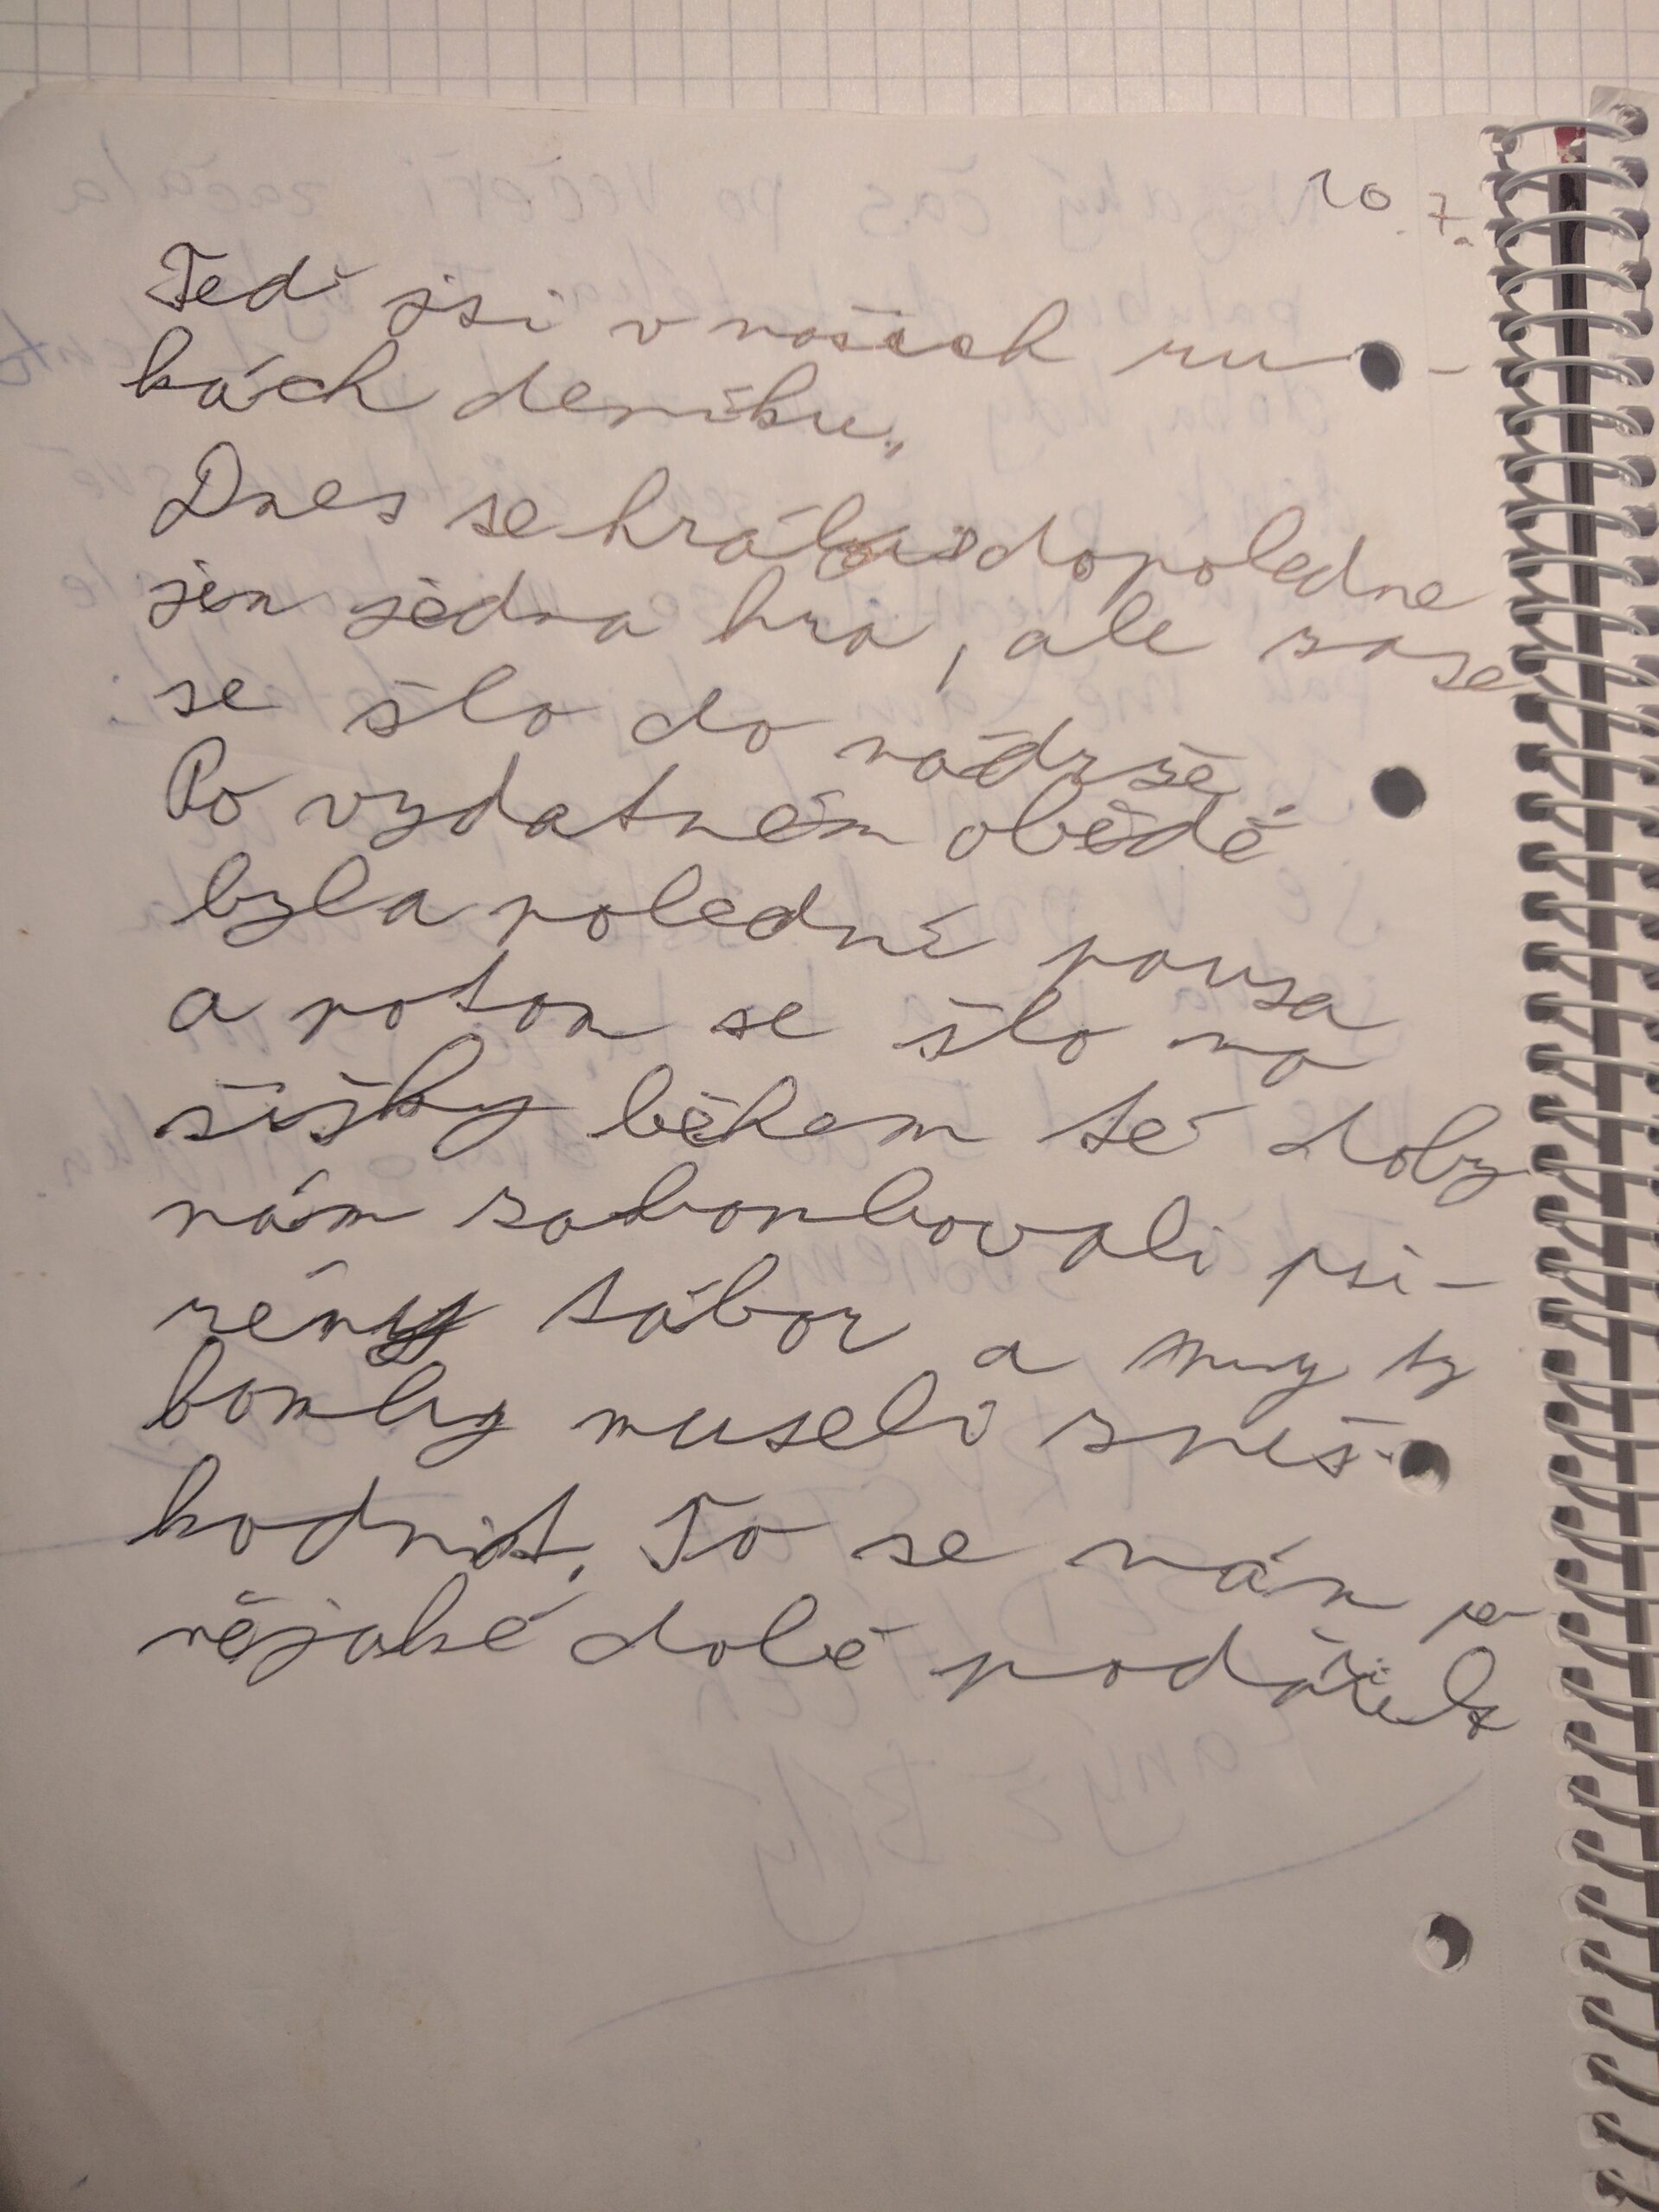 20.7.
Teď jsi v našich ru-
kách deníku.,
Dnes se hrála dopoledne
jen jedna hra, ale zase
se šlo do nádrže
Po vydatném obědě
byla polední pauza
a potom se šlo na
šišky během té doby
nám zabombovali psi-
rény tábor a my ty
bomby museli zneš-
kodnit. To se nám po
nějaké době podařilo